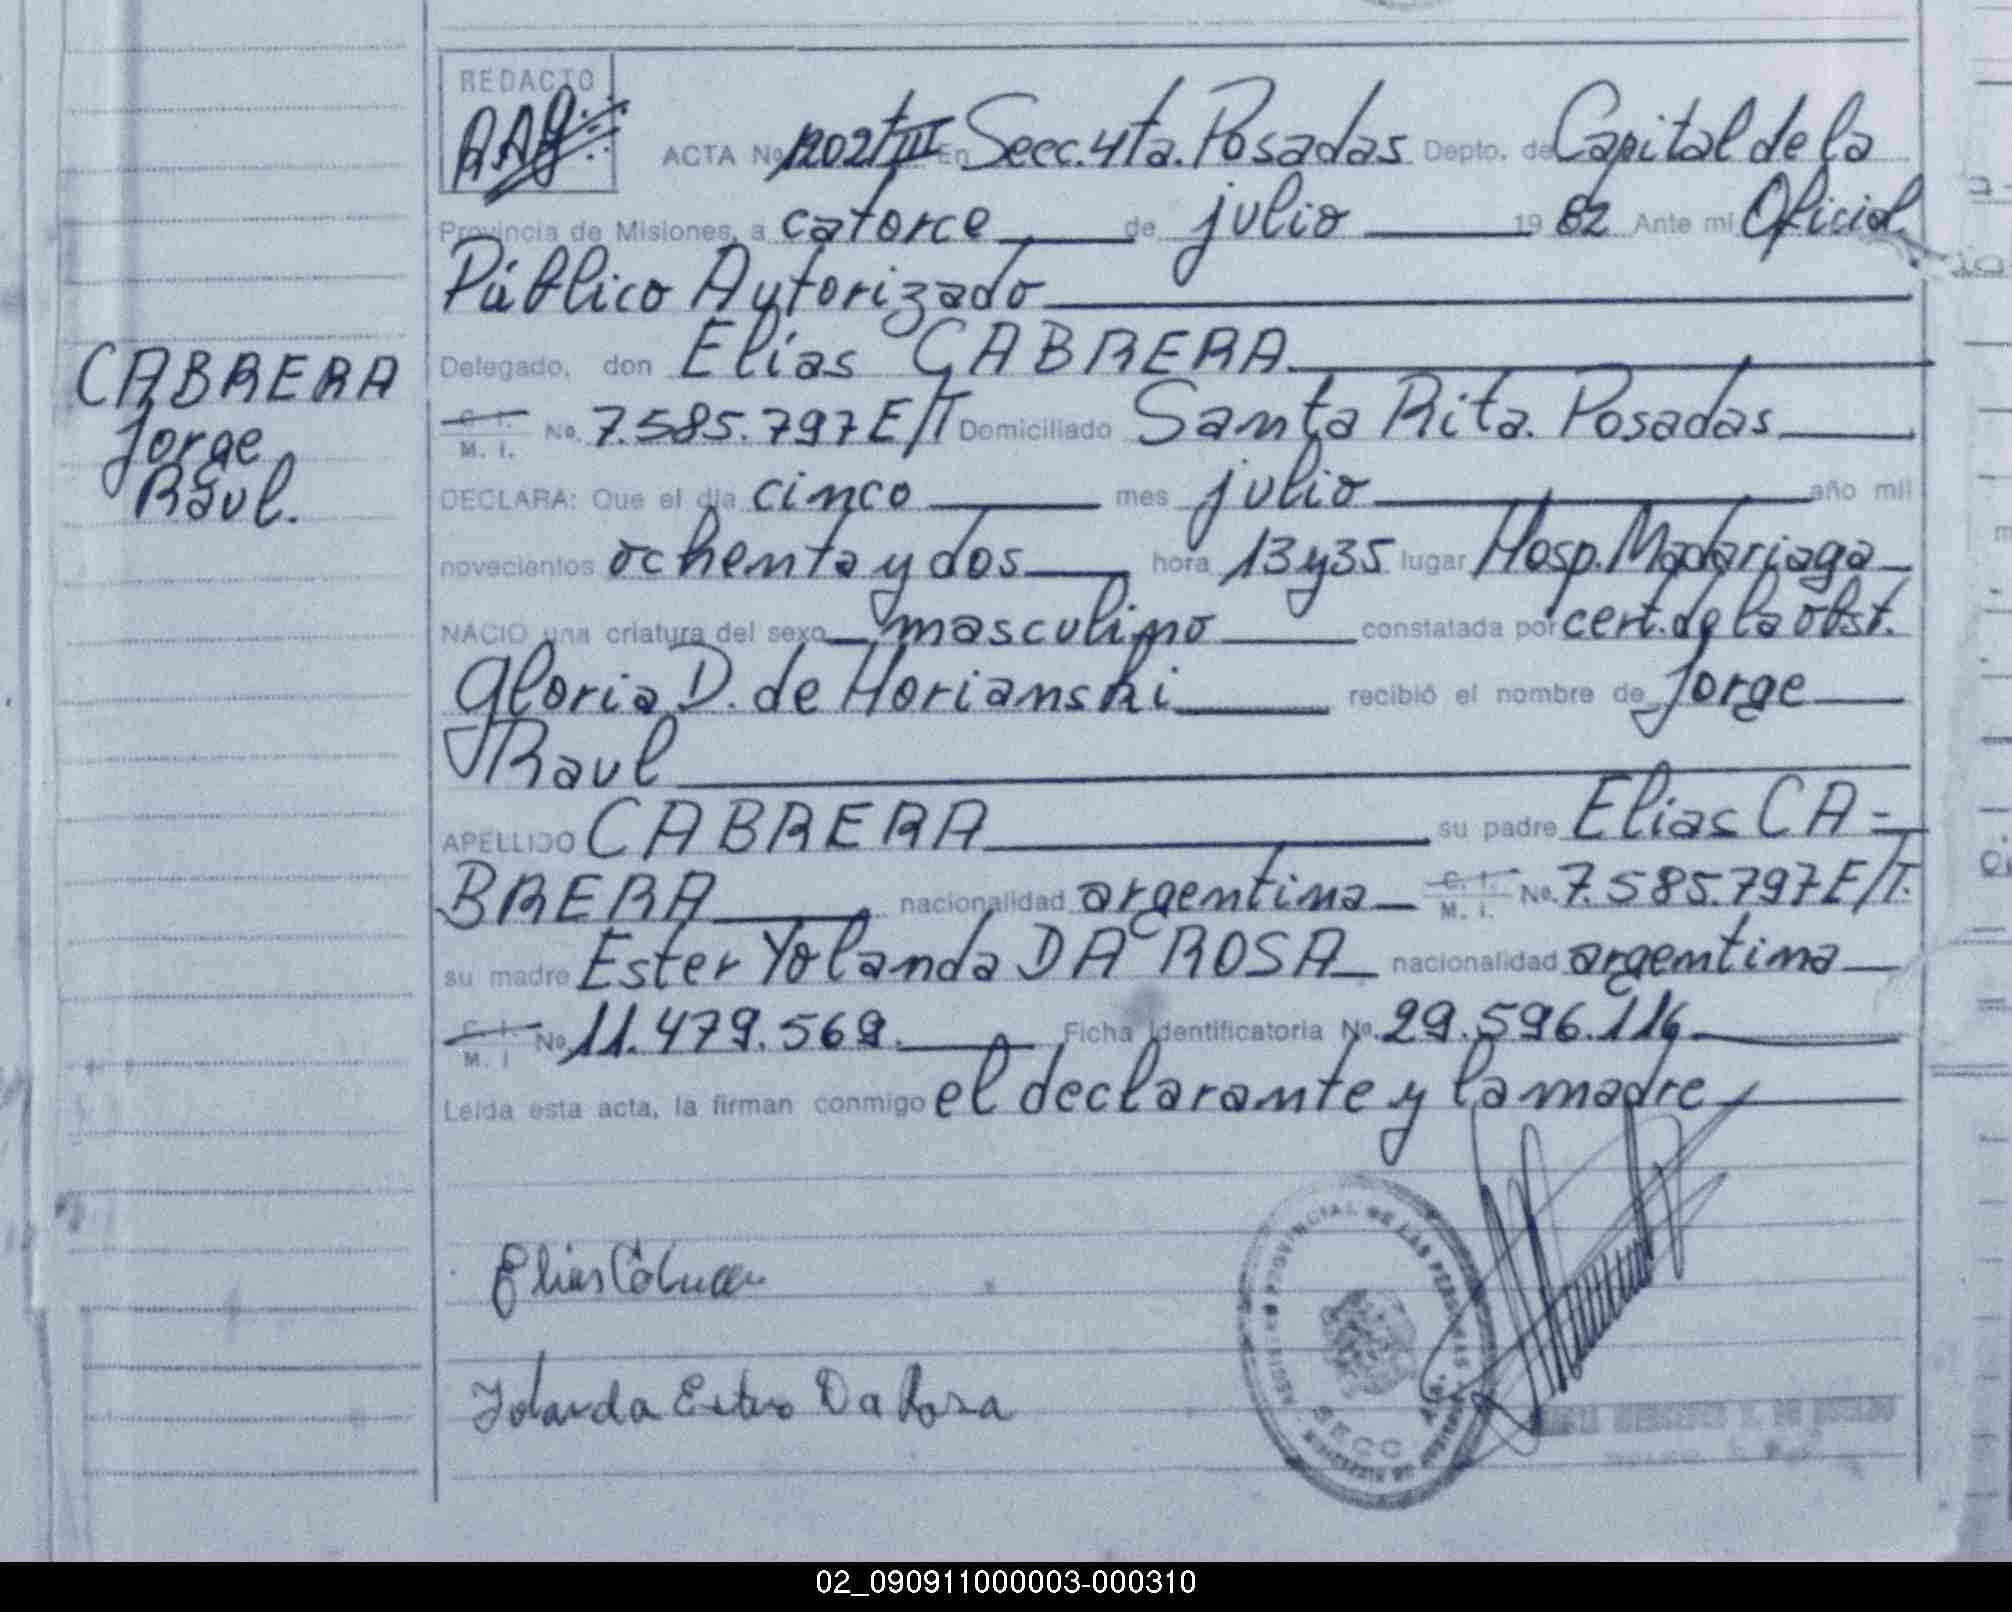 REDACTO
ACTA No. 1202 tº III En Secc. 4ta. Posadas Depto. de Capital de la
Provincia de Misiones, a catorce de julio 1982 Ante mi Oficial
Público Autorizado
CABRERA
Jorge
Raul.
Delegado, don Elías CABRERA
C. I. M. I. No. 7.585.797 E/T Domiciliado Santa Rita. Posadas
DECLARA: Que el dia cinco mes julio año mil
novecientos ochenta y dos hora 13 y 35 lugar Hosp. Madariaga
NACIO una criatura del sexo masculino constatada por cert. de la obst.
Gloria D. de Horianski recibió el nombre de Jorge
Raul
APELLIDO CABRERA su padre Elias CA-
BRERA nacionalidad argentina C. I. M. I. No. 7.585.797 E/T.
su madre Ester Yolanda DA ROSA nacionalidad argentina
C. I. M. I No. 11.479.569. Ficha Identificatoria No. 29.596.116
Leida esta acta, la firman conmigo el declarante y la madre
Elias Cabrera
Yolanda Ester Da Rosa
PROVINCIAL DE LAS PERSONAS
SECC.
02_090911000003-000310